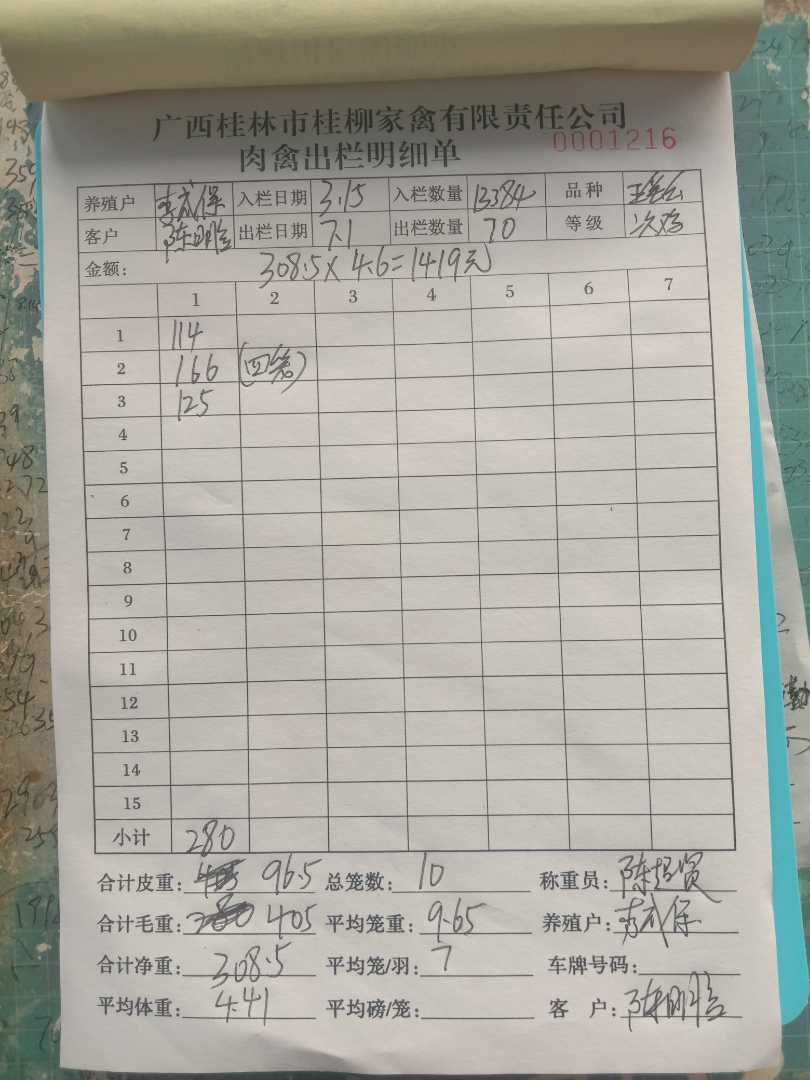 广西桂林市桂柳家禽有限责任公司
肉禽出栏明细单 0001216
养殖户 保 入栏日期 3.15 入栏数量 13384 品种
客户 陈明 出栏日期 7.1 出栏数量 70 等级 次鸡
金额: 308.5×4.6=1419元
1 2 3 4 5 6 7
1 114
2 166 (四笼)
3 125
4
5
6
7
8
9
10
11
12
13
14
15
小计 280
合计皮重: 96.5 总笼数: 10 称重员: 陈超贤
合计毛重: 405 平均笼重: 9.65 养殖户: 保
合计净重: 308.5 平均笼/羽: 7 车牌号码:
平均体重: 4.41 平均磅/笼: 客 户: 陈明